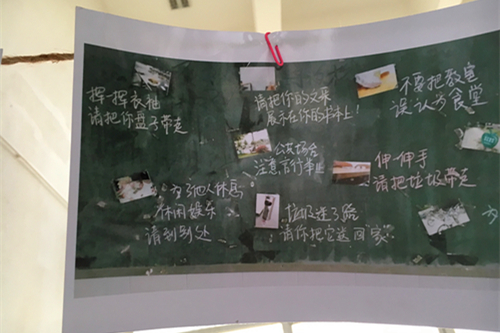 挥一挥衣袖
请把你垃圾带走
请把你的文采
展示在你的书本上!
不要把教室
误认为食堂
公共场合
注意言行举止
伸一伸手
请把垃圾带走
为了他人休息
休闲娱乐
请到别处
垃圾迷了路
请你把它送回“家”
方